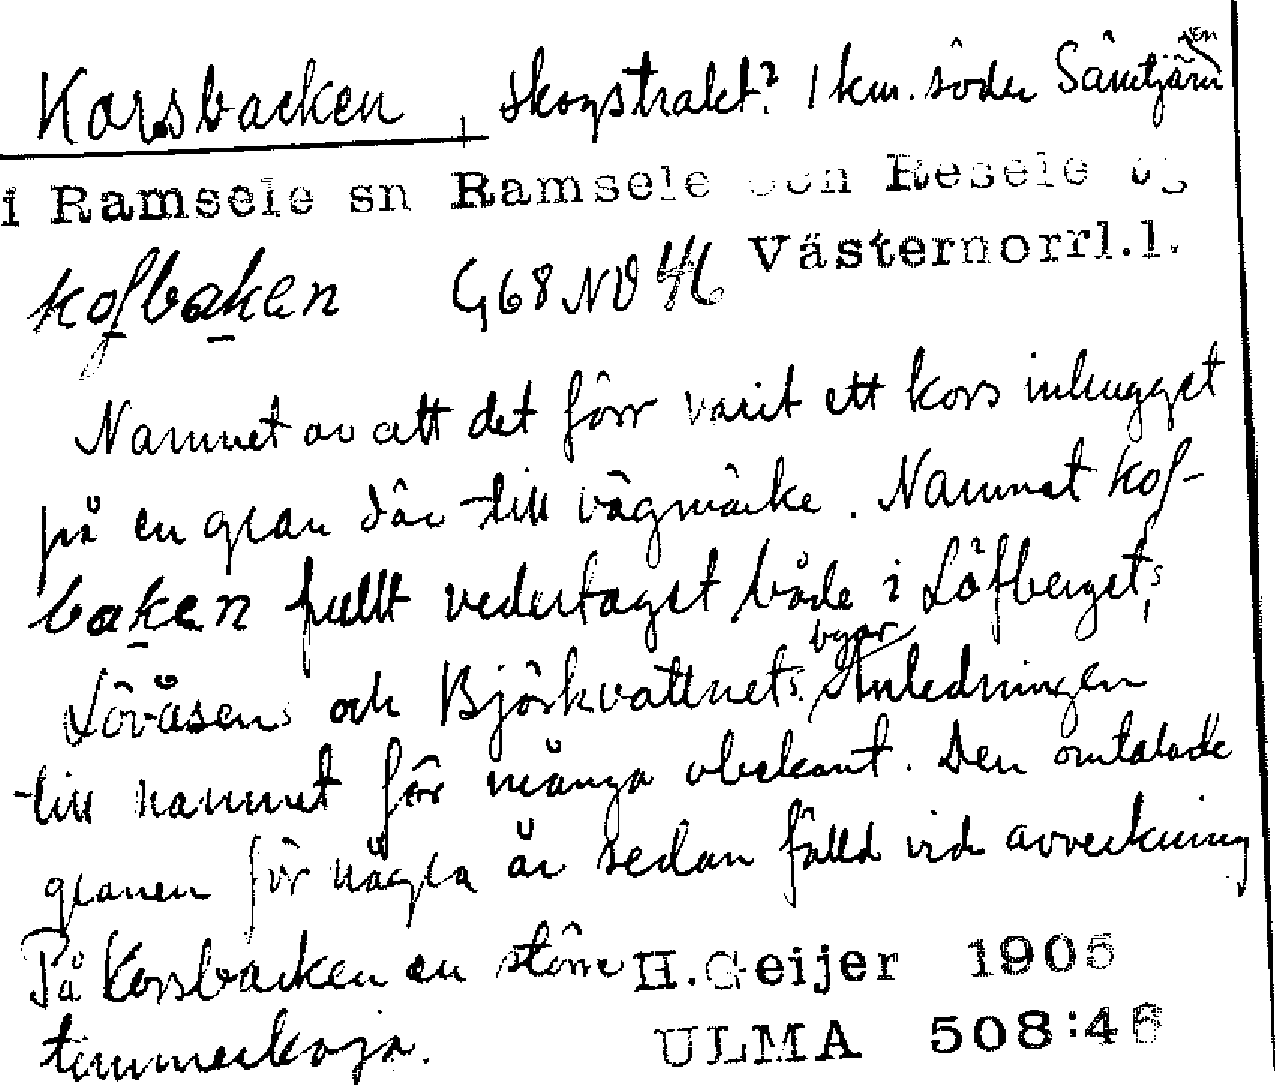 Korsbacken, Skogstrakt? 1 km. söder Sämtjärnen
i Ramsele sn Ramsele och Resele tg
Västernorrl.l.
kofbaken G68 NV 4/6
Namnet av att det förr varit ett kors inhugget
på en gran där till vägmärke. Namnet kof-
baken fullt vedertaget både i Löfbergets,
Lövåsens och Björkvattnets byar. Anledningen
till namnet för många obekant. Den omtalade
granen för några år sedan fälld vid avverkning
På Korsbacken en större
timmerkoja.
H.Geijer 1905
ULMA 508:46